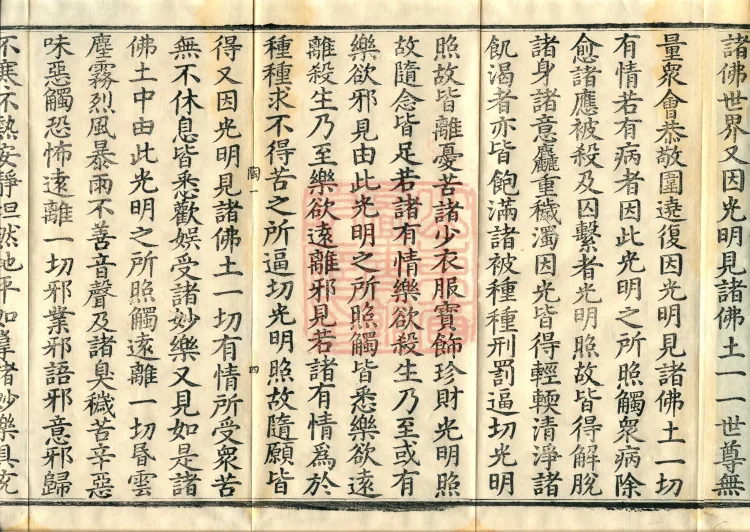 諸佛世界又因光明見諸佛土一一世尊無
量衆會恭敬圍遶復因光明見諸佛土一切
有情若有病者因此光明之所照觸衆病除
愈諸應被殺及囚繫者光明照故皆得解脫
諸身諸意麤重穢濁因光皆得輕輭清淨諸
飢渴者亦皆飽滿諸被種種刑罰逼切光明
照故皆離憂苦諸少衣服寶飾珍財光明照
故隨念皆足若諸有情樂欲殺生乃至或有
樂欲邪見由此光明之所照觸皆悉樂欲遠
離殺生乃至樂欲遠離邪見若諸有情爲於
種種求不得苦之所逼切光明照故隨願皆
陶一 四
得又因光明見諸佛土一切有情所受衆苦
無不休息皆悉歡娛受諸妙樂又見如是諸
佛土中由此光明之所照觸遠離一切昏雲
塵霧烈風暴雨不善音聲及諸臭穢苦辛惡
味惡觸恐怖遠離一切邪業邪語邪意邪歸
不寒不熱安靜坦然地平如掌諸妙樂具充